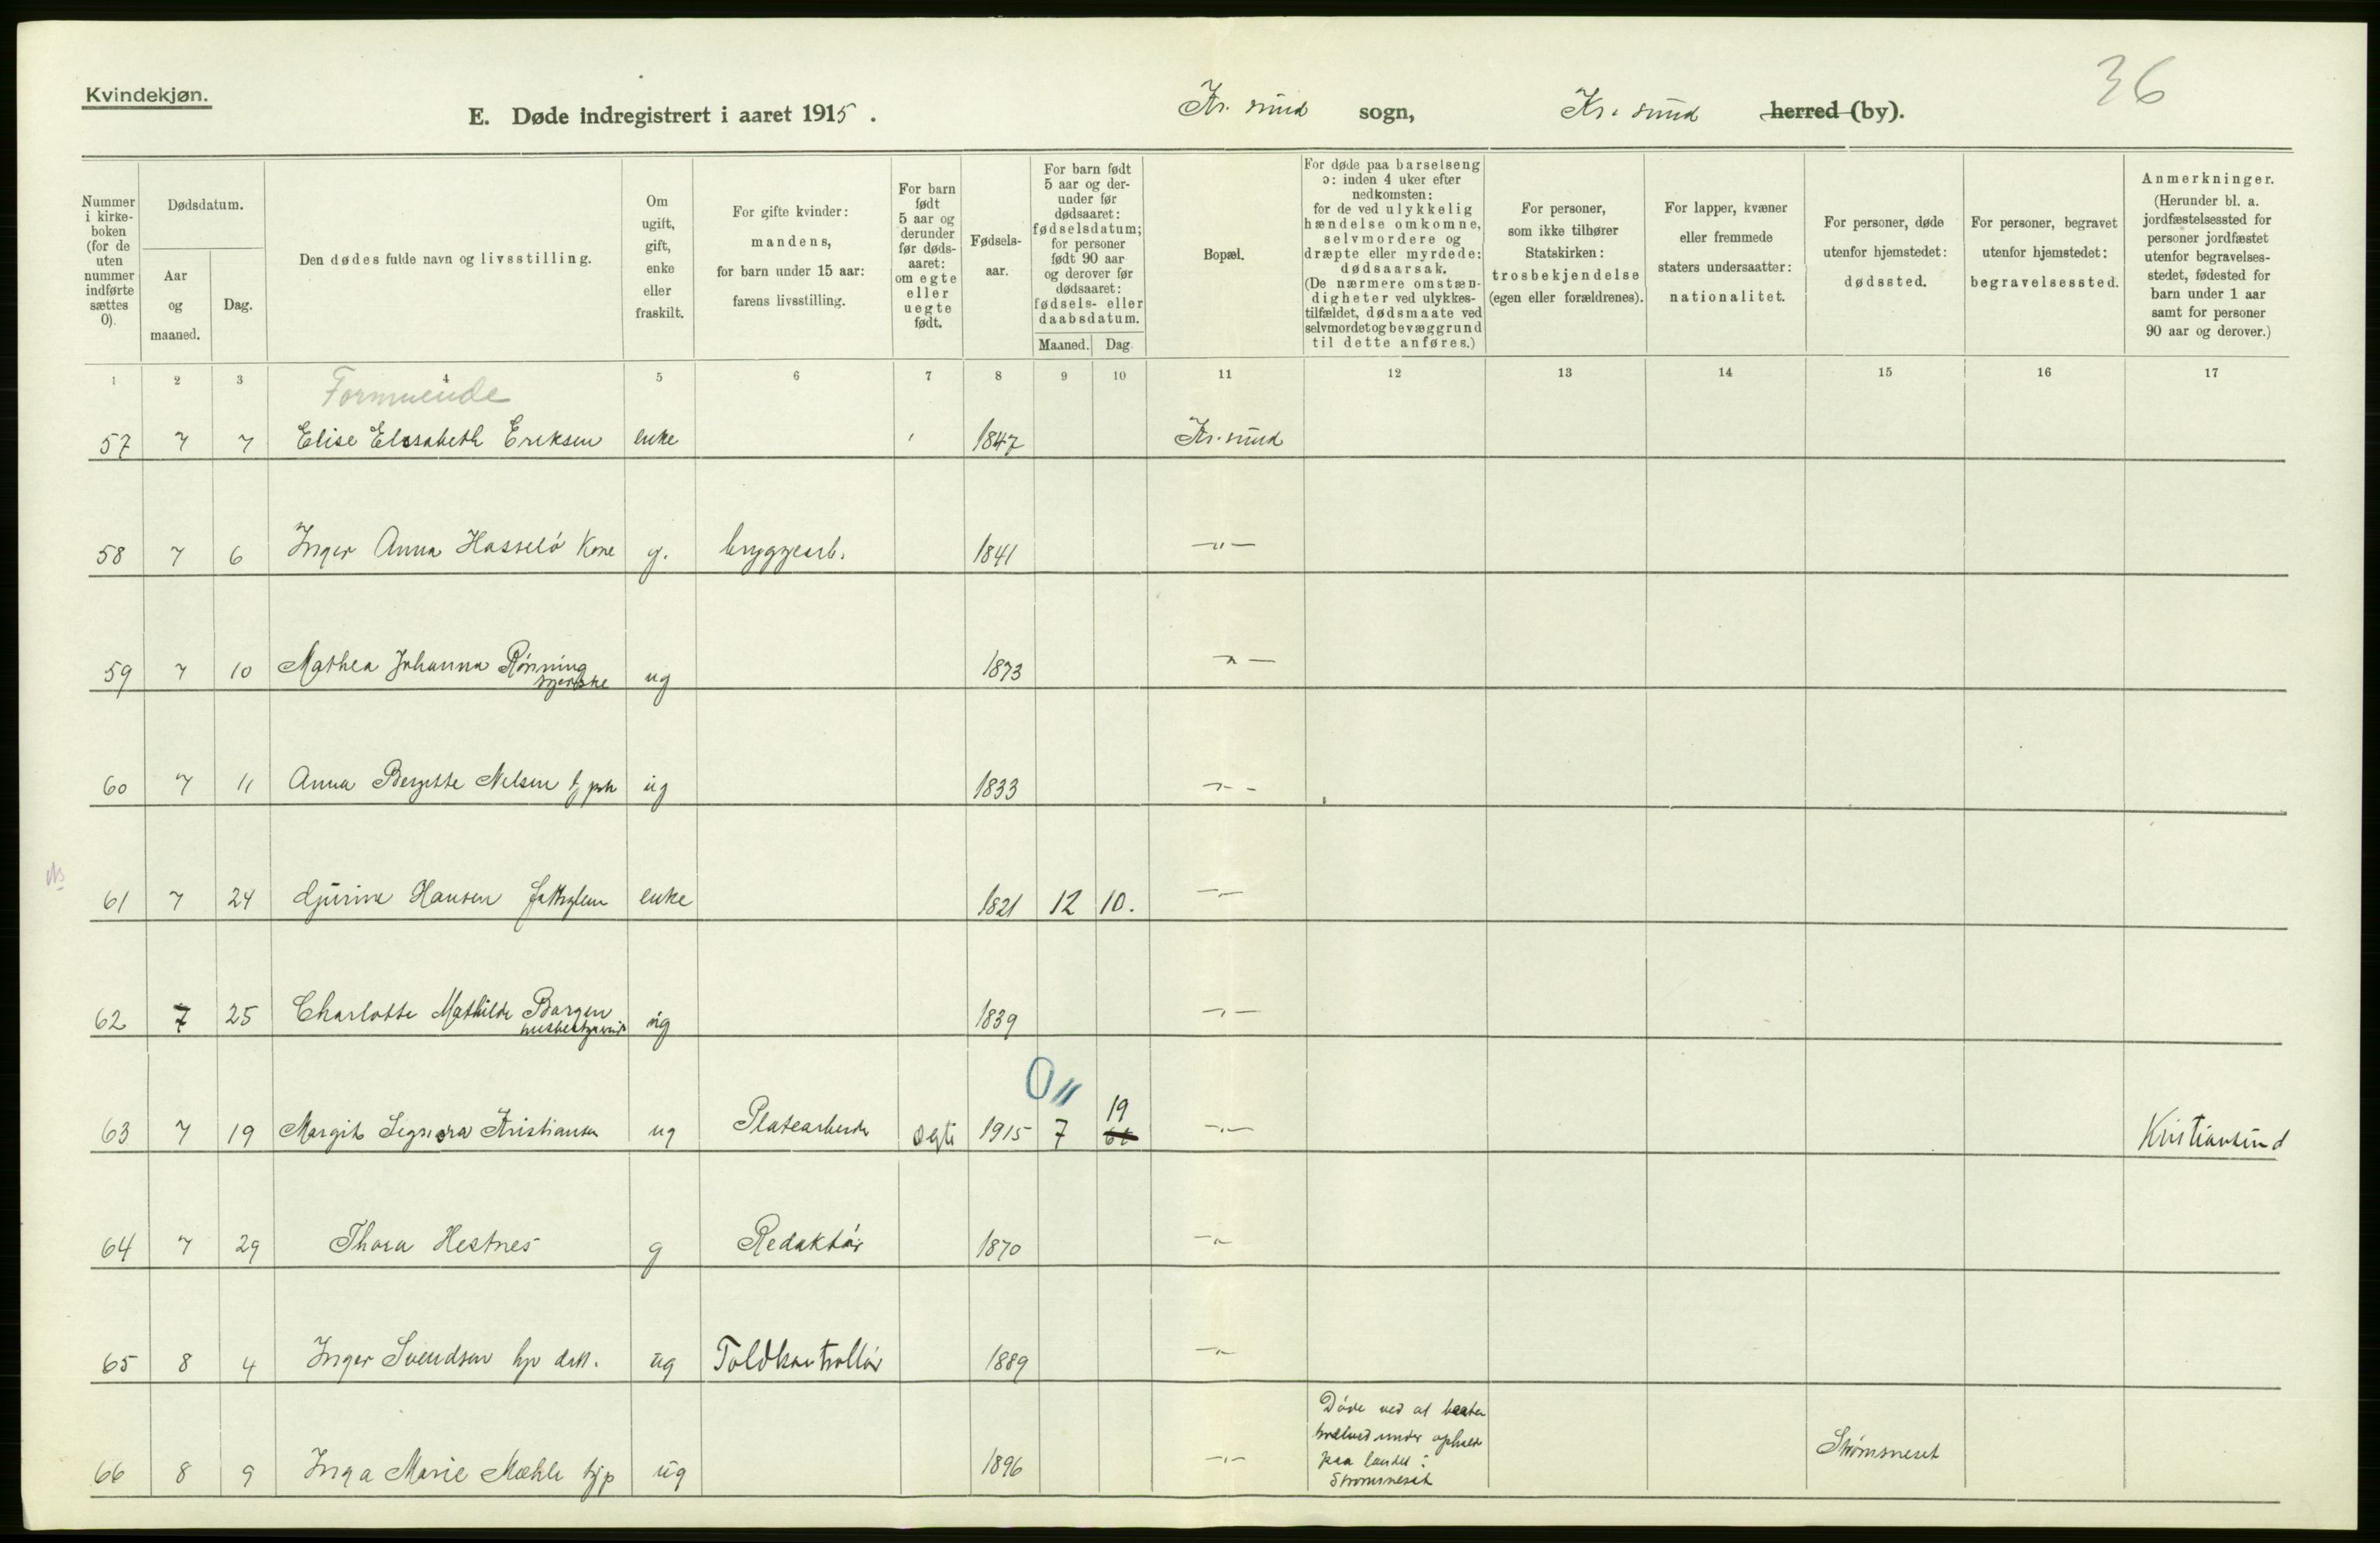 Kvindekjøn.
36
E. Døde indregistrert i aaret 1915. Kr. sund sogn, Kr. sund herred (by).
Nummer i kirke-boken (for de uten nummer indførte sættes 0).
Dødsdatum.
Aar og maaned.
Dag.
Den dødes fulde navn og livsstilling.
Om ugift, gift, enke eller fraskilt.
For gifte kvinder: mandens, for barn under 15 aar: farens livsstilling.
For barn født 5 aar og derunder før døds-aaret: om egte eller uegte født.
Fødsels-aar.
For barn født 5 aar og der-under før dødsaaret: fødselsdatum; for personer født 90 aar og derover før dødsaaret: fødsels- eller daabsdatum.
Maaned. Dag.
Bopæl.
For døde paa barselseng ɔ: inden 4 uker efter nedkomsten: for de ved ulykkelig hændelse omkomne, selvmordere og dræpte eller myrdede: dødsaarsak. (De nærmere omstæn-digheter ved ulykkes-tilfældet, dødsmaate ved selvmordet og bevæggrund til dette anføres.)
For personer, som ikke tilhører Statskirken: trosbekjendelse (egen eller forældrenes).
For lapper, kvæner eller fremmede staters undersaatter: nationalitet.
For personer, døde utenfor hjemstedet: dødssted.
For personer, begravet utenfor hjemstedet: begravelsessted.
Anmerkninger. (Herunder bl. a. jordfæstelsessted for personer jordfæstet utenfor begravelses-stedet, fødested for barn under 1 aar samt for personer 90 aar og derover.)
1 2 3 4 5 6 7 8 9 10 11 12 13 14 15 16 17
Formuende
57 7 7 Elise Elisabeth Eriksen enke 1847 Kr. sund
58 7 6 Inger Anna Hasselö Kone g. bryggearb. 1841 —"—
59 7 10 Mathea Johanna Rönning syerske ug 1873 —"—
60 7 11 Anna Bergitte Nelsen ug 1833 —"—
61 7 24 Gjurine Hansen enke 1821 12 10. —"—
62 7 25 Charlotte Mathilde Borgen ug 1839 —"—
0 11
63 7 19 Margit Signora Kristiansen ug Platearbeider egte 1915 7 19 —"— Kristiansund
64 7 29 Thora Hestnes g Redaktör 1870 —"—
65 8 4 Inger Svendsen ug Toldkontrollör 1889 —"—
66 8 9 Inga Marie Mæhle tjp ug 1896 —"— Döde ved at baaten hvælved under ophold paa landet i Strømsneset Strømsneset